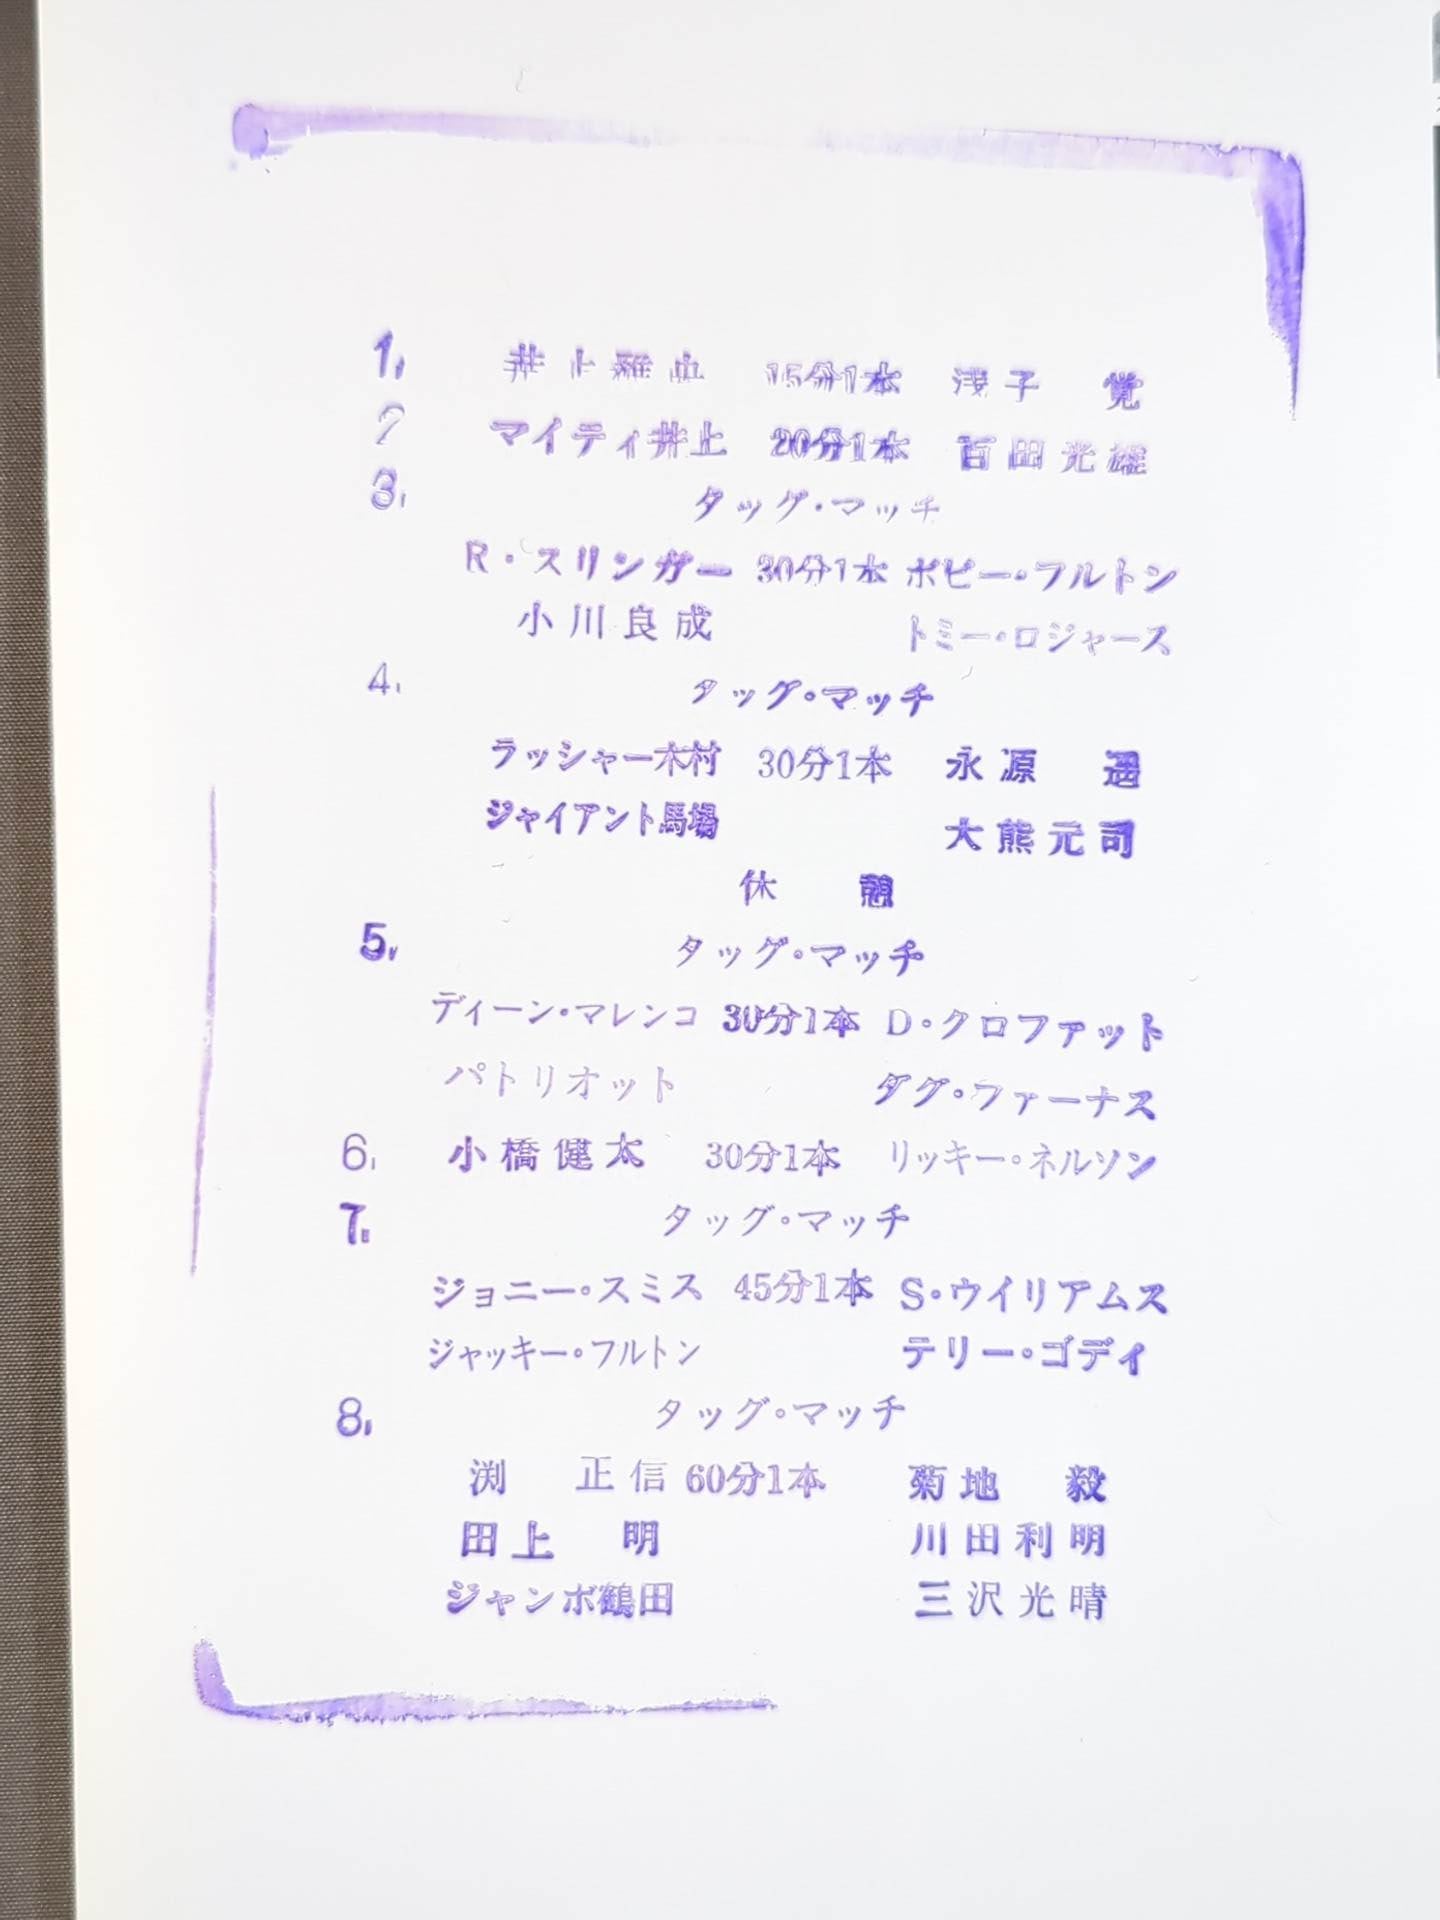 1. 井上雅央 15分1本 浅子 覚
2 マイティ井上 20分1本 百田光雄
3. タッグ・マッチ
R・スリンガー 30分1本 ボビー・フルトン
小川良成 トミー・ロジャース
4. タッグ・マッチ
ラッシャー木村 30分1本 永源 遥
ジャイアント馬場 大熊元司
休 憩
5. タッグ・マッチ
ディーン・マレンコ 30分1本 D・クロファット
パトリオット ダグ・ファーナス
6. 小橋健太 30分1本 リッキー・ネルソン
7. タッグ・マッチ
ジョニー・スミス 45分1本 S・ウイリアムス
ジャッキー・フルトン テリー・ゴディ
8. タッグ・マッチ
渕 正信 60分1本 菊地 毅
田上 明 川田利明
ジャンボ鶴田 三沢光晴